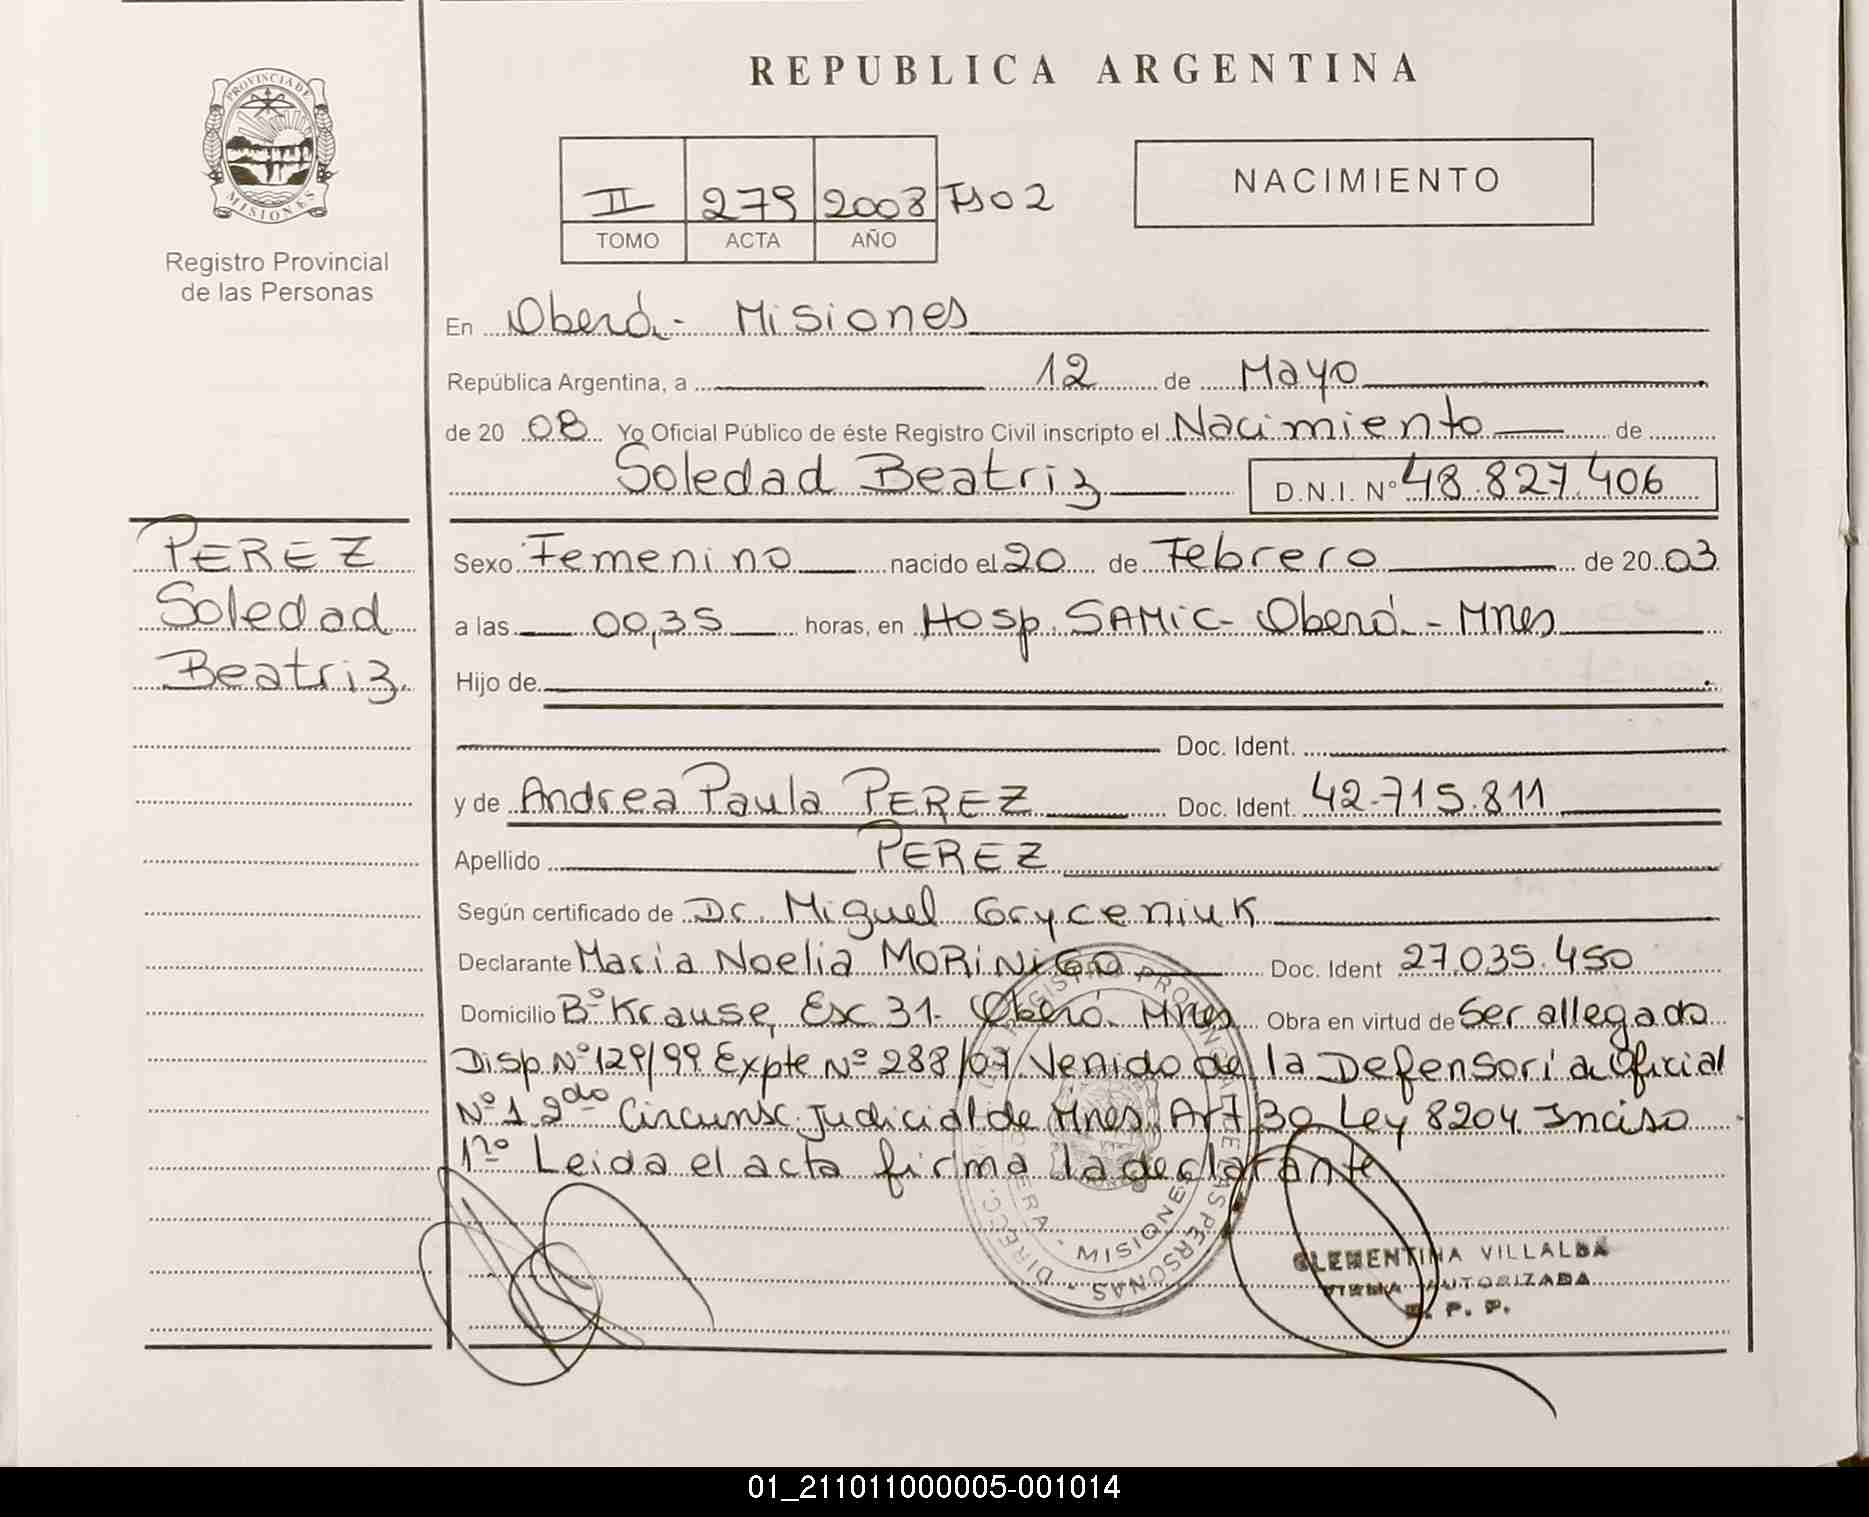 REPUBLICA ARGENTINA
PROVINCIA DE
MISIONES
Registro Provincial
de las Personas
II 279 2008 Fº 02
TOMO ACTA AÑO
NACIMIENTO
En Oberá - Misiones
República Argentina, a 12 de Mayo
de 20 08 Yo Oficial Público de éste Registro Civil inscripto el Nacimiento de
Soledad Beatriz D.N.I. Nº 48.827.406
PEREZ
Soledad
Beatriz.
Sexo Femenino nacido el 20 de Febrero de 20 03
a las 00,35 horas, en Hosp. SAMIC - Oberá - Mnes
Hijo de
Doc. Ident.
y de Andrea Paula PEREZ Doc. Ident. 42.715.811
Apellido PEREZ
Según certificado de Dr. Miguel Gryceniuk
Declarante Maria Noelia MORINIGO Doc. Ident 27.035.450
Domicilio Bº Krause, Ex 31 - Oberá. Mnes Obra en virtud de Ser allegada
Disp. Nº 129/99 Expte Nº 288/07 Venido de la Defensoría Oficial
Nº 1 2do Circunsc. Judicial de Mnes. Art 30 Ley 8204 Inciso
1ro Leida el acta firma la declarante
CLEMENTINA VILLALBA
FIRMA AUTORIZADA
R. P. P.
01_211011000005-001014